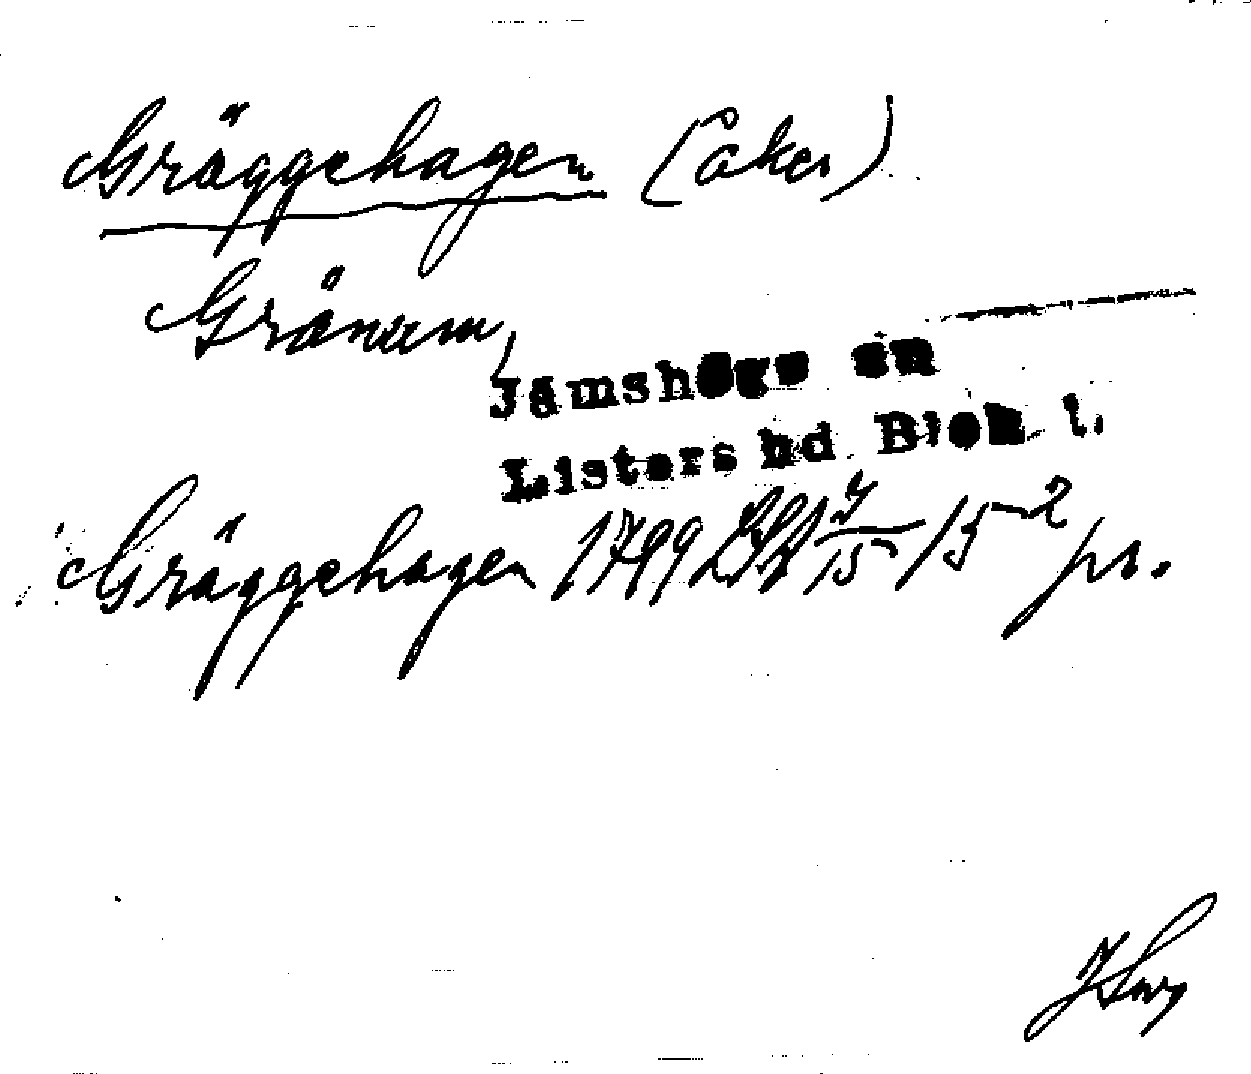 Gräggehagen (åker)
Gränum,
Jämshögs sn
Listers hd Blek l.
Gräggehagen 1799 15 2 pr.